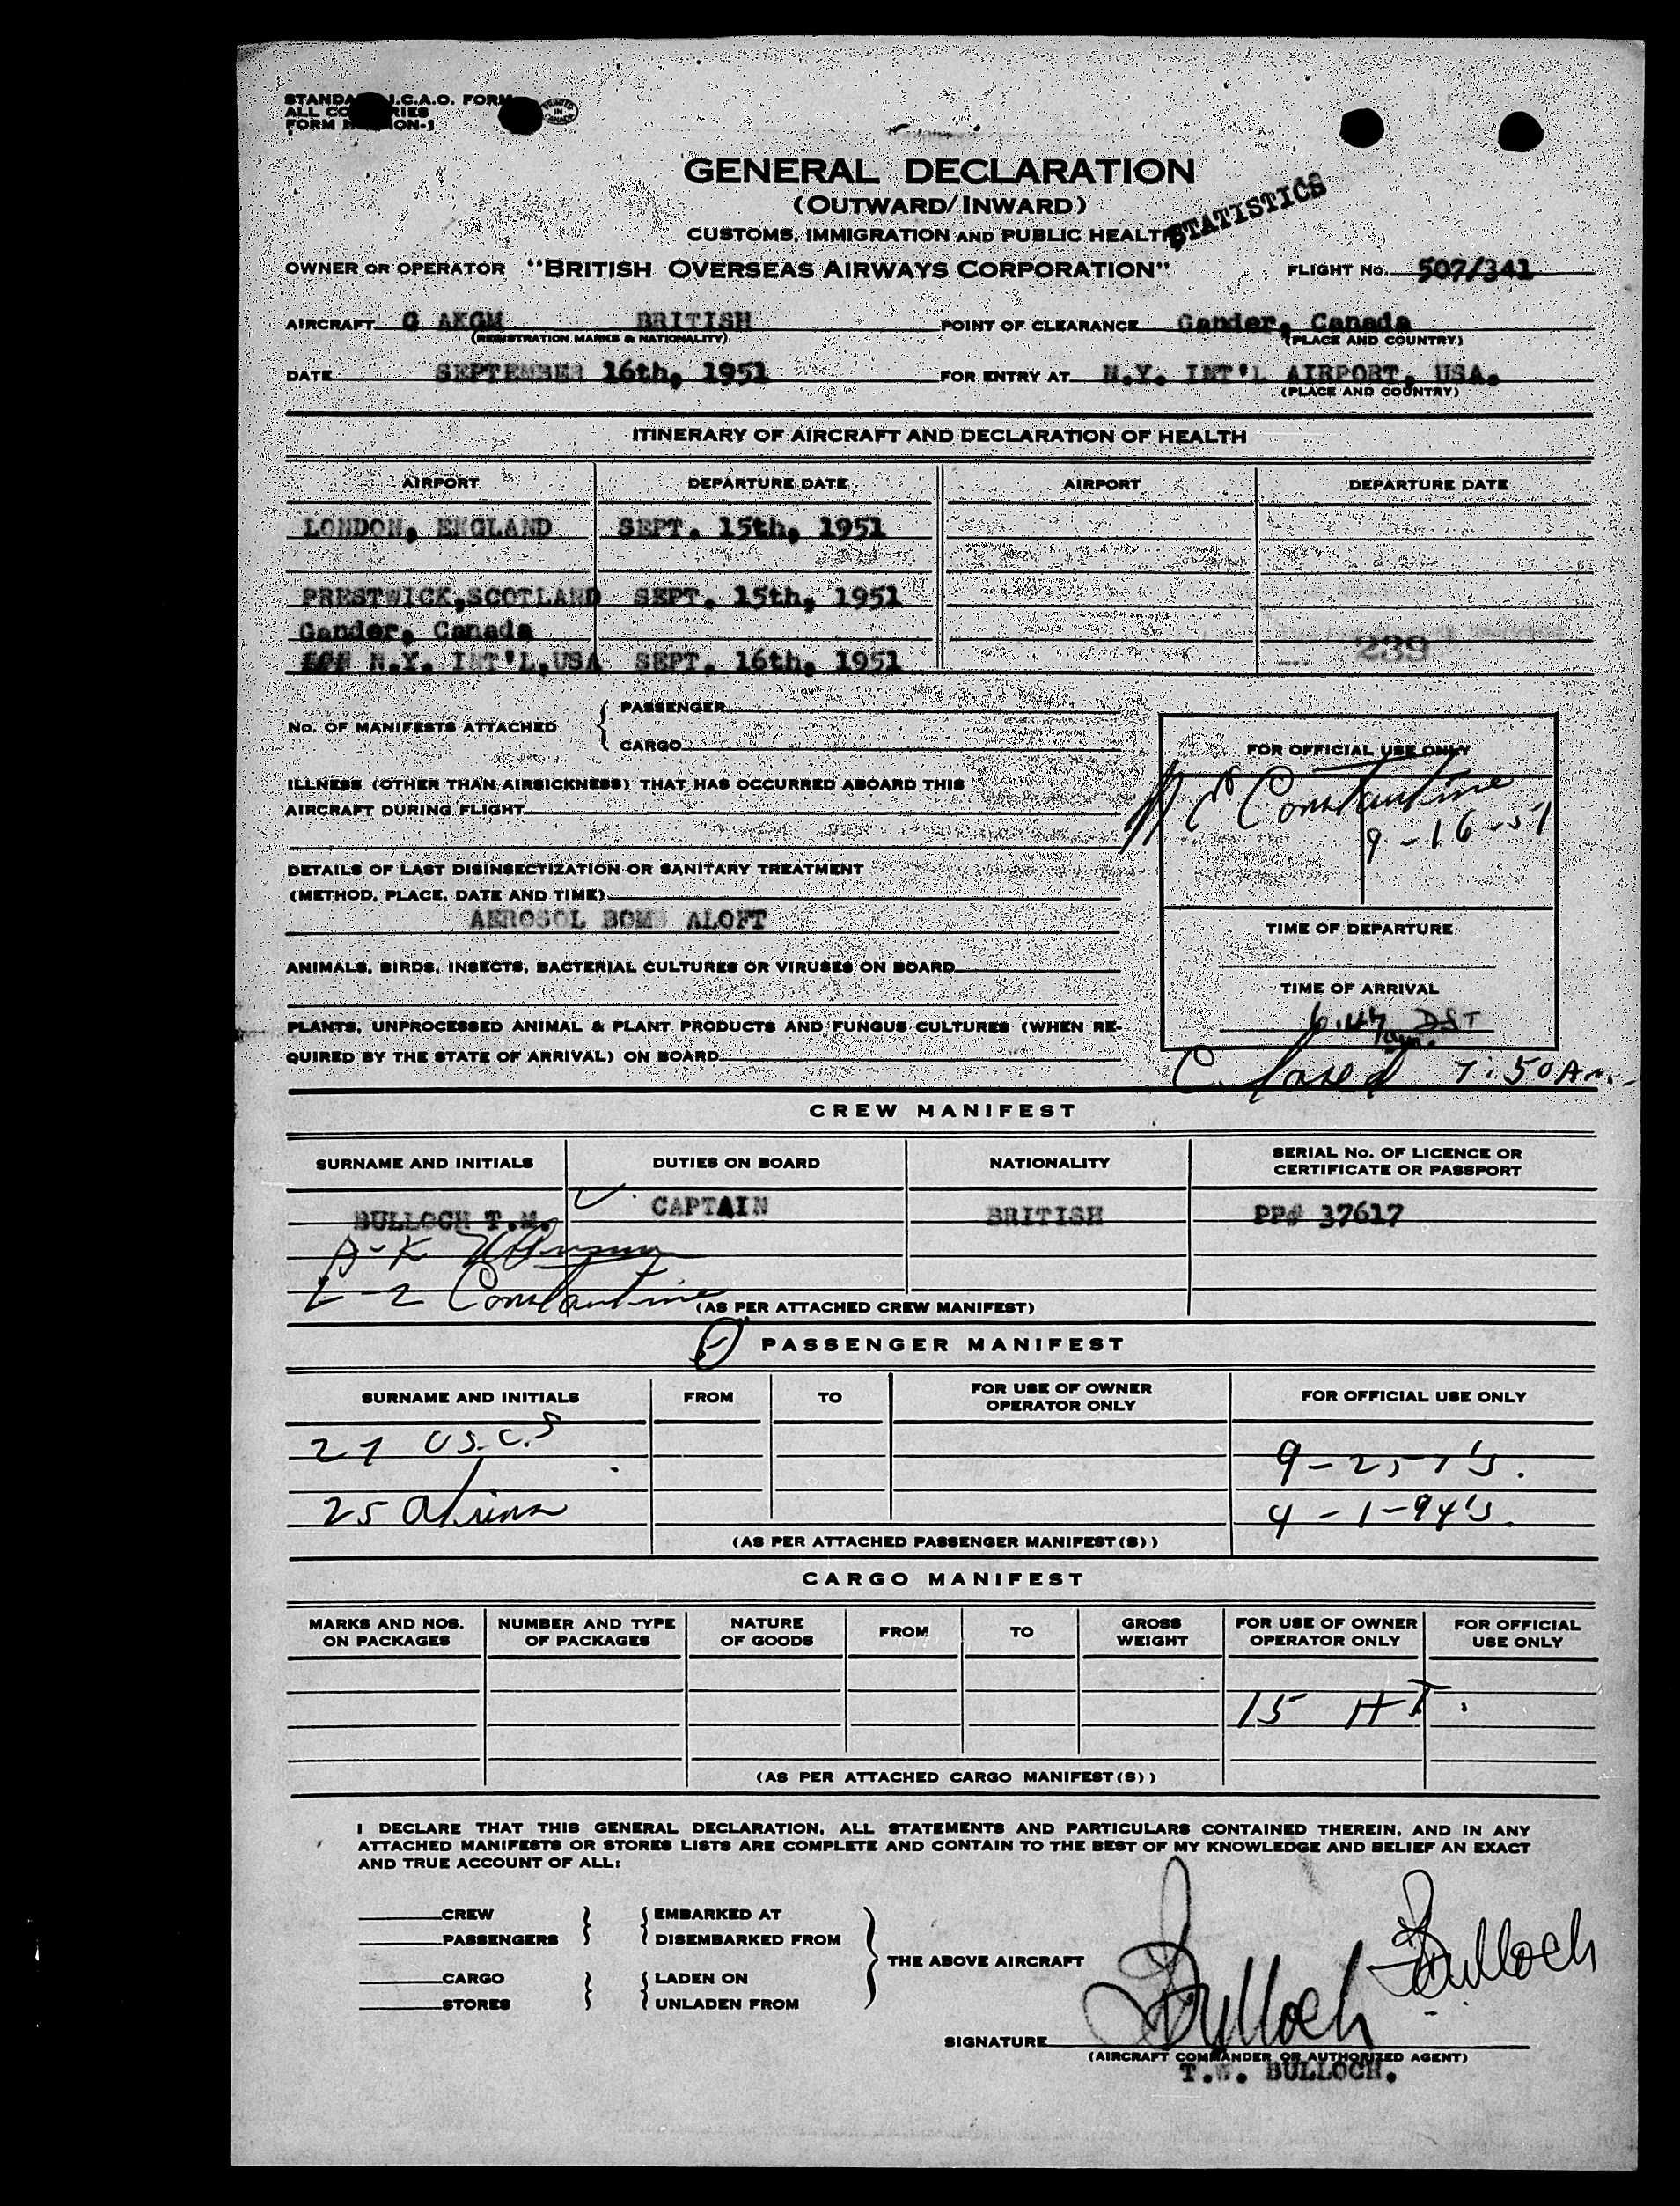 STANDA I.C.A.O. FORM
ALL CO RIES
FORM ON-1
PRINTED IN CANADA
GENERAL DECLARATION
(OUTWARD/INWARD)
CUSTOMS, IMMIGRATION AND PUBLIC HEALTH
STATISTICS
OWNER OR OPERATOR "BRITISH OVERSEAS AIRWAYS CORPORATION" FLIGHT No. 507/341
AIRCRAFT G AKGM BRITISH POINT OF CLEARANCE Gander, Canada
(REGISTRATION MARKS & NATIONALITY) (PLACE AND COUNTRY)
DATE SEPTEMBER 16th, 1951 FOR ENTRY AT N.Y. INT'L AIRPORT, USA.
(PLACE AND COUNTRY)
ITINERARY OF AIRCRAFT AND DECLARATION OF HEALTH
AIRPORT DEPARTURE DATE AIRPORT DEPARTURE DATE
LONDON, ENGLAND SEPT. 15th, 1951
PRESTWICK,SCOTLAND SEPT. 15th, 1951
Gander, Canada
N.Y. INT'L,USA SEPT. 16th, 1951 239
No. OF MANIFESTS ATTACHED { PASSENGER
CARGO
FOR OFFICIAL USE ONLY
Constantine
9-16-51
ILLNESS (OTHER THAN AIRSICKNESS) THAT HAS OCCURRED ABOARD THIS
AIRCRAFT DURING FLIGHT
DETAILS OF LAST DISINSECTIZATION OR SANITARY TREATMENT
(METHOD, PLACE, DATE AND TIME)
AEROSOL BOMB ALOFT
TIME OF DEPARTURE
ANIMALS, BIRDS, INSECTS, BACTERIAL CULTURES OR VIRUSES ON BOARD
TIME OF ARRIVAL
6.47 DST
PLANTS, UNPROCESSED ANIMAL & PLANT PRODUCTS AND FUNGUS CULTURES (WHEN RE-
QUIRED BY THE STATE OF ARRIVAL) ON BOARD
7:50 Am.
CREW MANIFEST
SURNAME AND INITIALS DUTIES ON BOARD NATIONALITY SERIAL No. OF LICENCE OR
CERTIFICATE OR PASSPORT
BULLOCH T.M. CAPTAIN BRITISH PP# 37617
A-K
L-2 Constantine
(AS PER ATTACHED CREW MANIFEST)
PASSENGER MANIFEST
SURNAME AND INITIALS FROM TO FOR USE OF OWNER
OPERATOR ONLY FOR OFFICIAL USE ONLY
27 U.S.C.S
9-257's.
25 aliens
4-1-94's.
(AS PER ATTACHED PASSENGER MANIFEST(S))
CARGO MANIFEST
MARKS AND NOS.
ON PACKAGES NUMBER AND TYPE
OF PACKAGES NATURE
OF GOODS FROM TO GROSS
WEIGHT FOR USE OF OWNER
OPERATOR ONLY FOR OFFICIAL
USE ONLY
15 HT.
(AS PER ATTACHED CARGO MANIFEST(S))
I DECLARE THAT THIS GENERAL DECLARATION, ALL STATEMENTS AND PARTICULARS CONTAINED THEREIN, AND IN ANY
ATTACHED MANIFESTS OR STORES LISTS ARE COMPLETE AND CONTAIN TO THE BEST OF MY KNOWLEDGE AND BELIEF AN EXACT
AND TRUE ACCOUNT OF ALL:
CREW } { EMBARKED AT
PASSENGERS DISEMBARKED FROM
THE ABOVE AIRCRAFT
CARGO } { LADEN ON
STORES UNLADEN FROM
Bulloch
Bulloch
SIGNATURE
(AIRCRAFT COMMANDER OR AUTHORIZED AGENT)
T.W. BULLOCH.